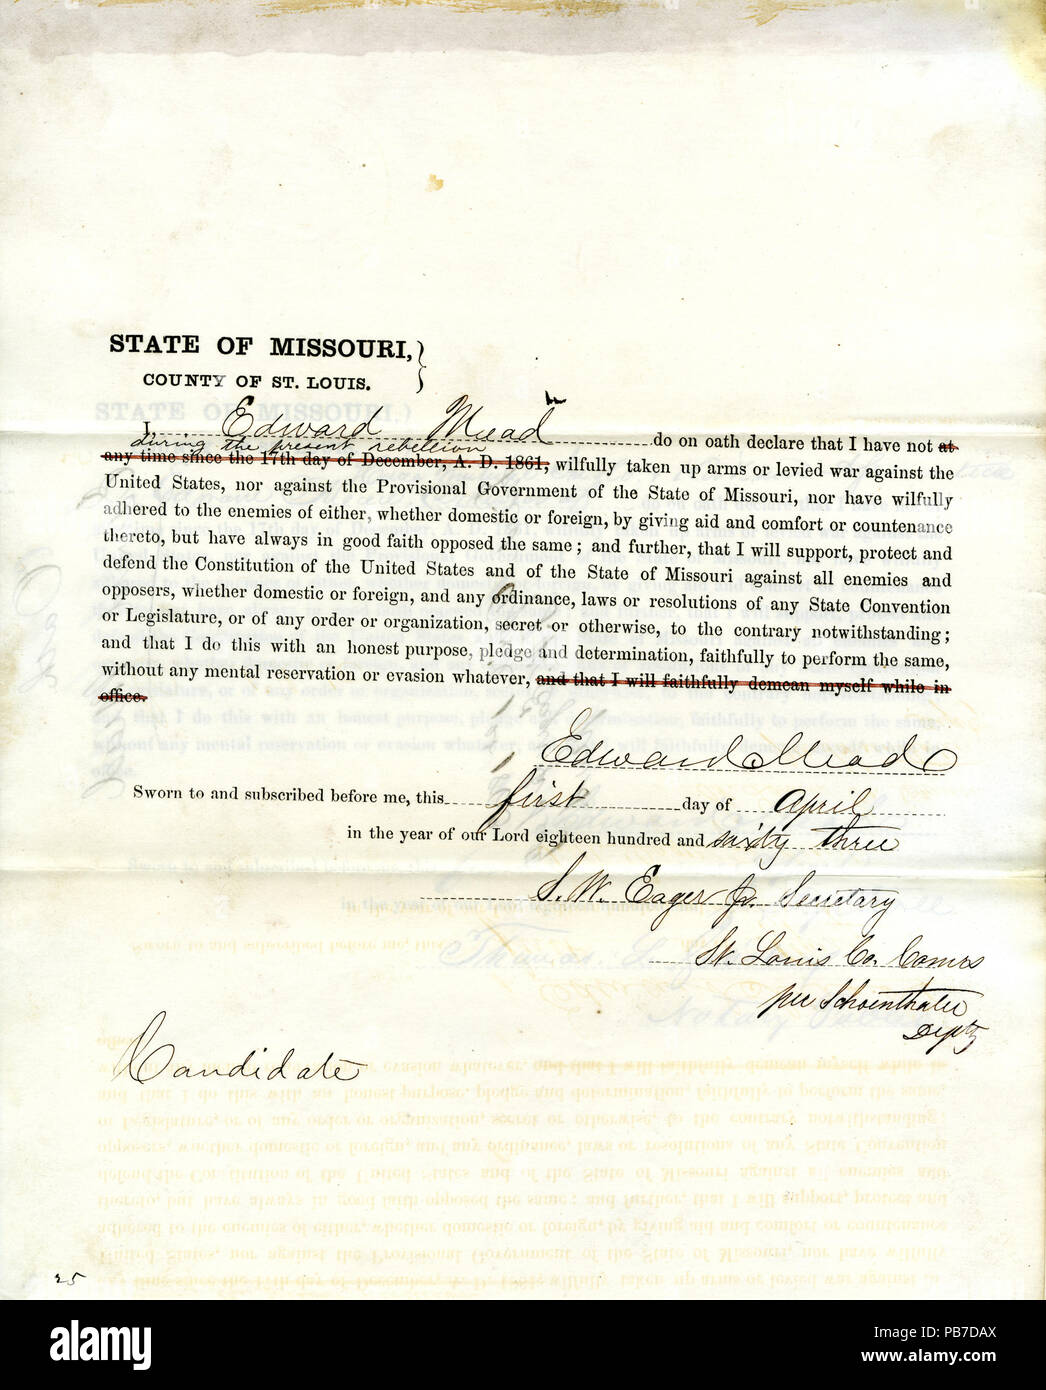 STATE OF MISSOURI,
COUNTY OF ST. LOUIS.
I, Edward Mead do on oath declare that I have not at
during the present rebellion
any time since the 17th day of December, A. D. 1861, wilfully taken up arms or levied war against the
United States, nor against the Provisional Government of the State of Missouri, nor have wilfully
adhered to the enemies of either, whether domestic or foreign, by giving aid and comfort or countenance
thereto, but have always in good faith opposed the same; and further, that I will support, protect and
defend the Constitution of the United States and of the State of Missouri against all enemies and
opposers, whether domestic or foreign, and any ordinance, laws or resolutions of any State Convention
or Legislature, or of any order or organization, secret or otherwise, to the contrary notwithstanding;
and that I do this with an honest purpose, pledge and determination, faithfully to perform the same,
without any mental reservation or evasion whatever, and that I will faithfully demean myself while in
office.
Edward Mead
Sworn to and subscribed before me, this first day of April
in the year of our Lord eighteen hundred and sixty three
S. W. Eager Jr. Secretary
St. Louis Co. Comrs
per Schoenthaler
Depty
Candidate
25
alamy
Image ID: PB7DAX
www.alamy.com